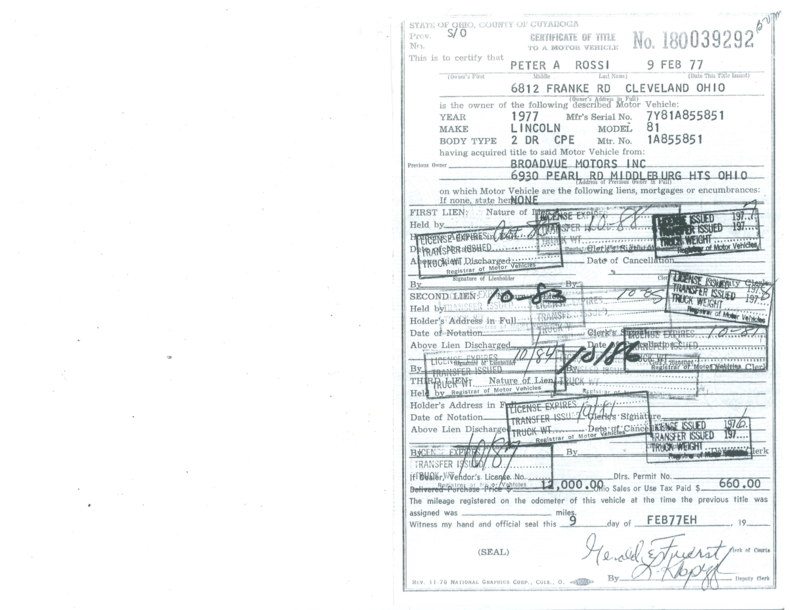 STATE OF OHIO, COUNTY OF CUYAHOGA
Prev. S/O CERTIFICATE OF TITLE No. 180039292
No. TO A MOTOR VEHICLE
This is to certify that PETER A ROSSI 9 FEB 77
(Owner's First Middle Last Name) (Date This Title Issued)
6812 FRANKE RD CLEVELAND OHIO
(Owner's Address in Full)
is the owner of the following described Motor Vehicle:
YEAR 1977 Mfr's Serial No. 7Y81A855851
MAKE LINCOLN MODEL 81
BODY TYPE 2 DR CPE Mtr. No. 1A855851
having acquired title to said Motor Vehicle from:
Previous Owner BROADVUE MOTORS INC
6930 PEARL RD MIDDLEBURG HTS OHIO
(Address of Previous Owner in Full)
on which Motor Vehicle are the following liens, mortgages or encumbrances:
If none, state here NONE
FIRST LIEN: Nature of Lien LICENSE EXPIRES 10-88 LICENSE ISSUED 197
Held by TRANSFER ISSUED 197
LICENSE EXPIRES TRUCK WT. TRUCK WEIGHT
TRANSFER ISSUED Registrar of Motor Vehicles
Above Lien Discharged Date of Cancellation
TRUCK WT.
Registrar of Motor Vehicles
Signature of Lienholder
By By Deputy Clerk
LICENSE ISSUED
TRANSFER ISSUED 197
TRUCK WEIGHT
Registrar of Motor Vehicles
SECOND LIEN: 10-83 10-85
Held by TRANSFER ISSUED
Holder's Address in Full
Date of Notation Clerk's LICENSE EXPIRES
Above Lien Discharged Date TRANSFER ISSUED
10/84 10/86 TRUCK WT.
LICENSE EXPIRES Registrar of Motor Vehicles
By TRANSFER ISSUED By Clerk
THIRD LIEN Nature of Lien TRUCK WT.
Held by Registrar of Motor Vehicles
Holder's Address in Full LICENSE EXPIRES 10/81
Date of Notation TRANSFER ISSUED Clerk's Signature
Above Lien Discharged TRUCK WT. Date of Cancellation
Registrar of Motor Vehicles
LICENSE ISSUED 197
TRANSFER ISSUED 197
TRUCK WEIGHT
Registrar of Motor Vehicles
By LICENSE EXPIRES By Clerk
TRANSFER ISSUED
If Dealer, Vendor's License No. Dlrs. Permit No.
Delivered Purchase Price $ 12,000.00 Ohio Sales or Use Tax Paid $ 660.00
The mileage registered on the odometer of this vehicle at the time the previous title was
assigned was miles.
Witness my hand and official seal this 9 day of FEB77EH 19
(SEAL) Gerald E Fuerst Clerk of Courts
By Deputy Clerk
REV. 11-76 NATIONAL GRAPHICS CORP., COLS., O.